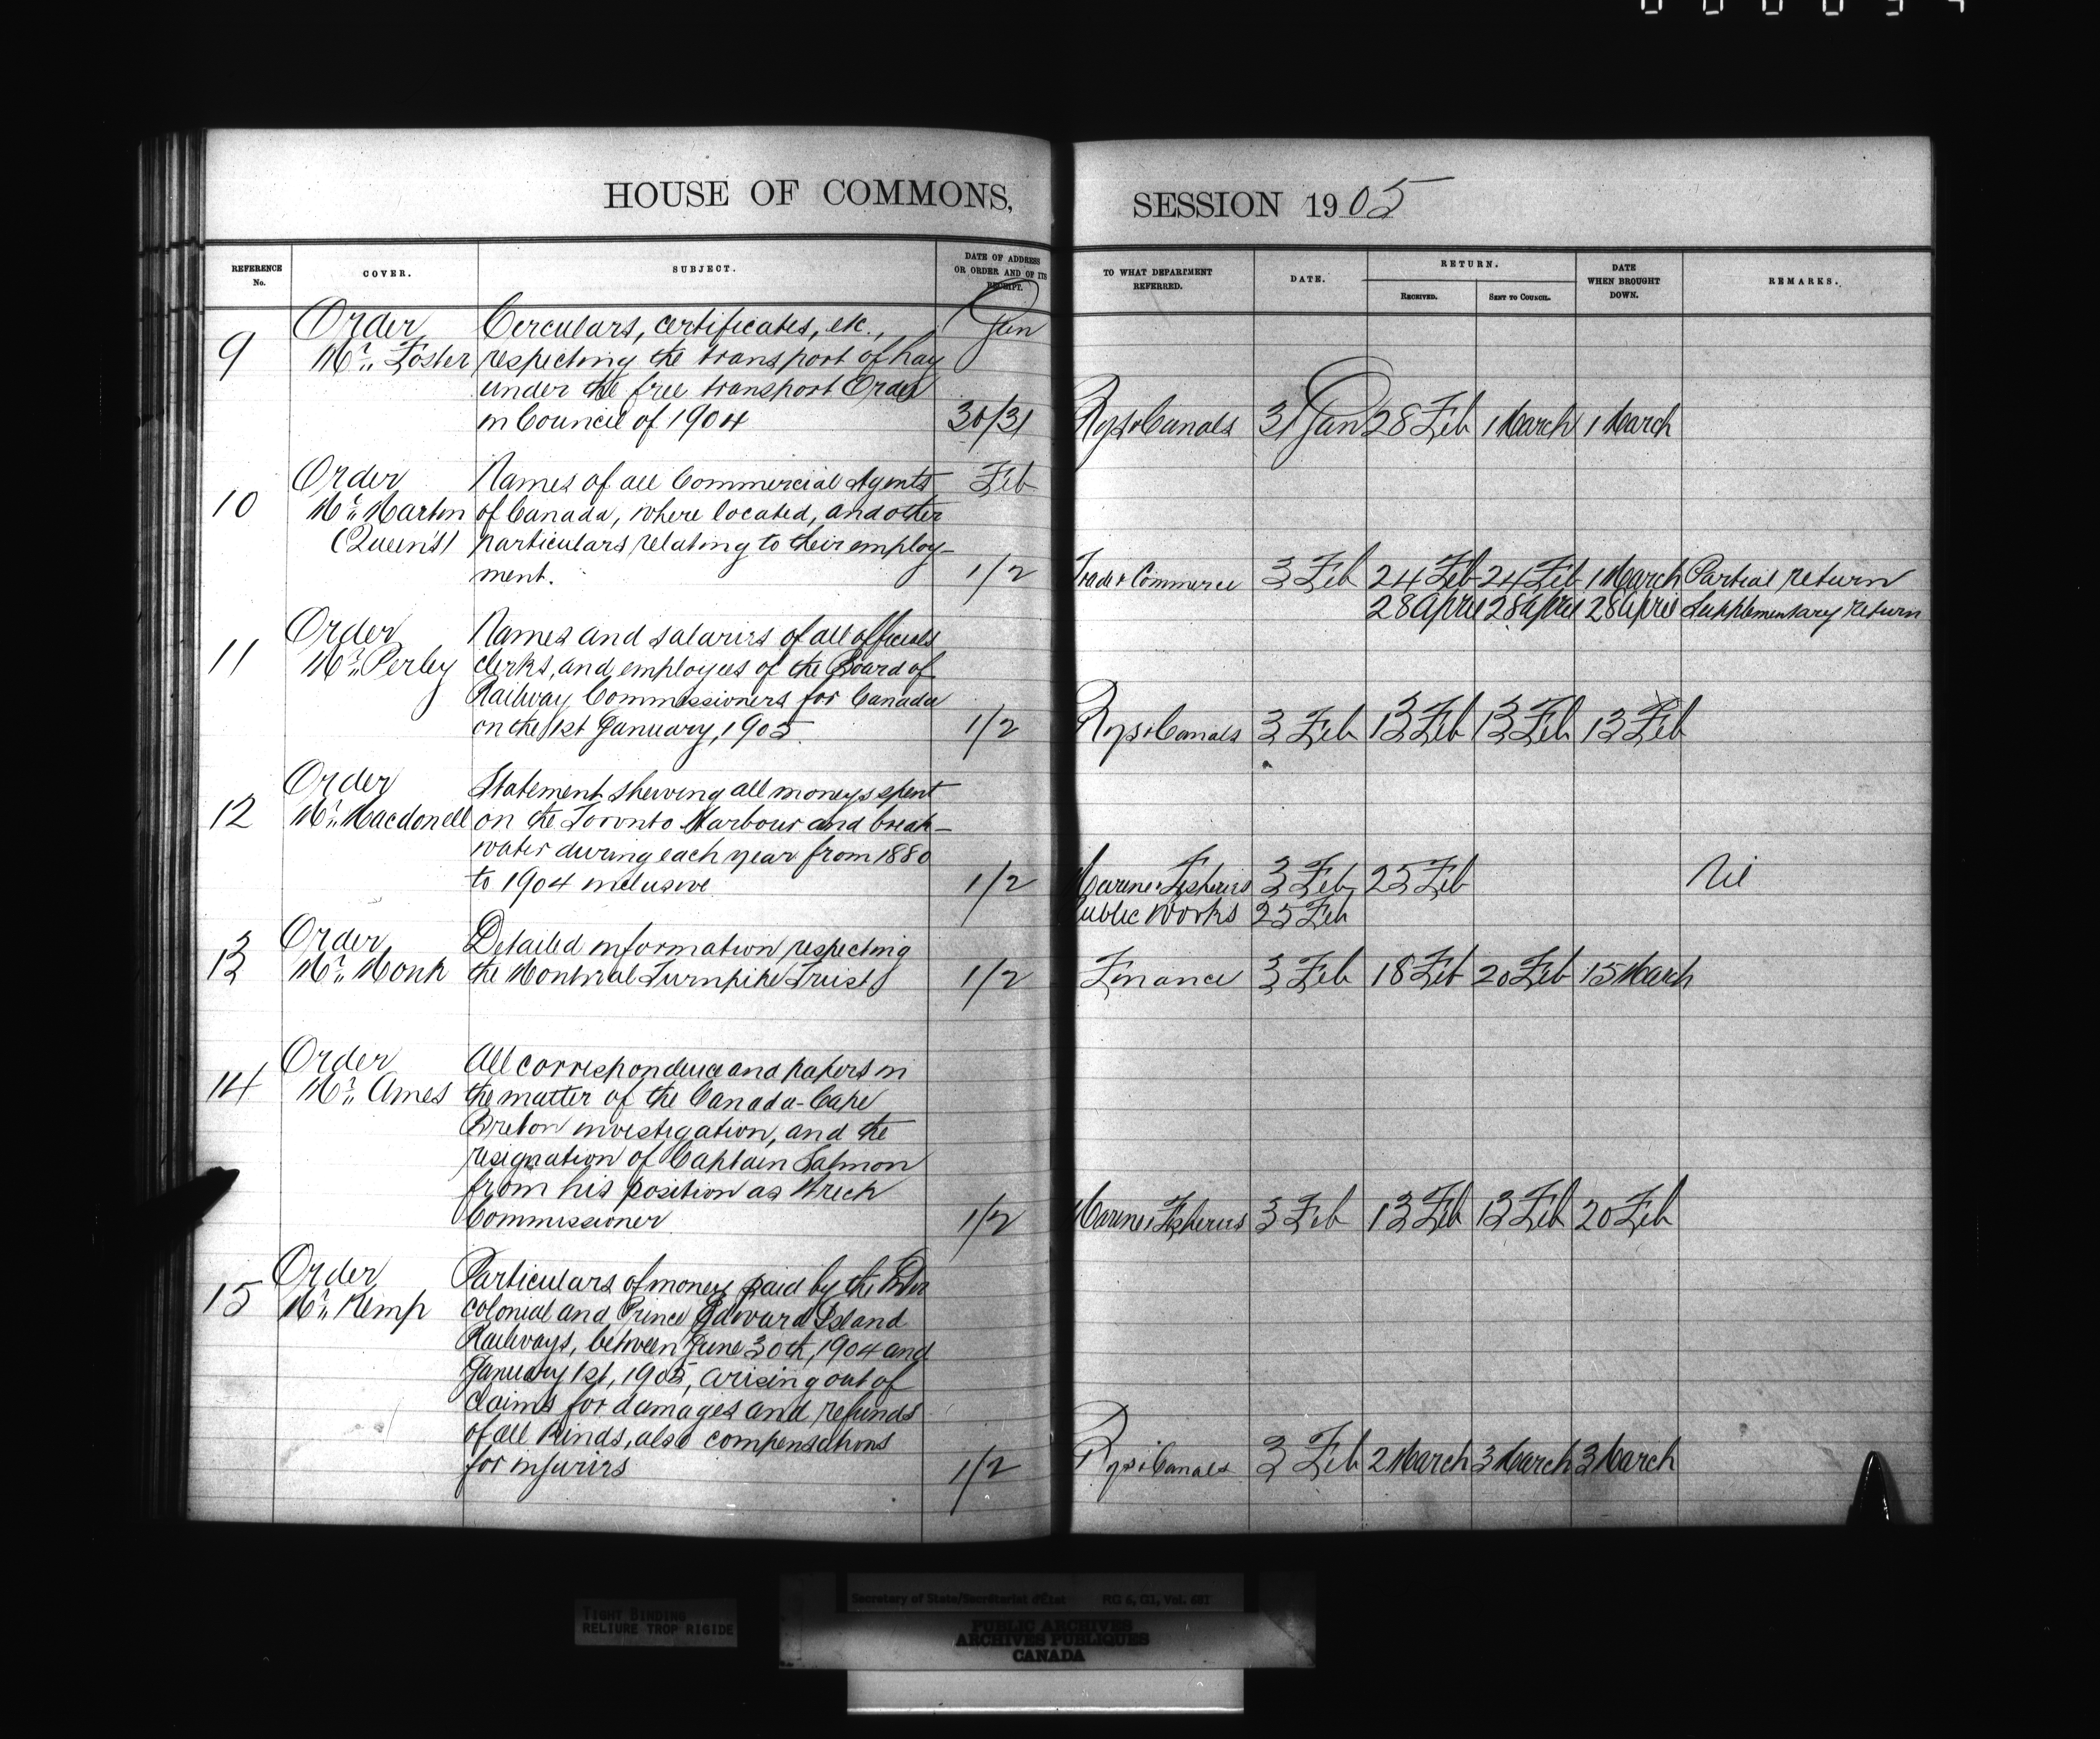 HOUSE OF COMMONS, SESSION 1905
REFERENCE No. COVER. SUBJECT. DATE OF ADDRESS OR ORDER AND OF ITS RECEIPT. TO WHAT DEPARTMENT REFERRED. DATE. RETURN. RECEIVED. SENT TO COUNCIL. DATE WHEN BROUGHT DOWN. REMARKS.
Order Circulars, certificates, etc., Jan
9 Mr. Foster respecting the transport of hay
under the free transport Order
in Council of 1904 30/31 Rys & Canals 31 Jan 28 Feb 1 March 1 March
Order Names of all Commercial Agents Feb
10 Mr. Martin of Canada, where located, and other
(Queen's) particulars relating to their employ-
ment. 1/2 Trade & Commerce 3 Feb 24 Feb 24 Feb 1 March Partial return
28 April 28 April 28 April Supplementary return
Order Names and salaries of all officials
11 Mr. Perley clerks, and employees of the Board of
Railway Commissioners for Canada
on the 1st January, 1905. 1/2 Rys & Canals 3 Feb 13 Feb 13 Feb 13 Feb
Order Statement shewing all moneys spent
12 Mr. Macdonell on the Toronto Harbour and break-
water during each year from 1880
to 1904 inclusive 1/2 Marine & Fisheries 3 Feb 25 Feb Nil
Public Works 25 Feb
Order Detailed information respecting
13 Mr. Monk the Montreal Turnpike Trusts 1/2 Finance 3 Feb 18 Feb 20 Feb 15 March
Order All correspondence and papers in
14 Mr. Ames the matter of the Canada-Cape
Breton investigation, and the
resignation of Captain Salmon
from his position as Wreck
Commissioner 1/2 Marine & Fisheries 3 Feb 13 Feb 13 Feb 20 Feb
Order Particulars of money paid by the Inter
15 Mr. Kemp colonial and Prince Edward Island
Railways, between June 30th, 1904 and
January 1st, 1905, arising out of
claims for damages and refunds
of all kinds, also compensations
for injuries 1/2 Rys & Canals 3 Feb 2 March 3 March 3 March
TIGHT BINDING
RELIURE TROP RIGIDE
Secretary of State/Secrétariat d'État RG 6, G1, Vol. 681
PUBLIC ARCHIVES
ARCHIVES PUBLIQUES
CANADA